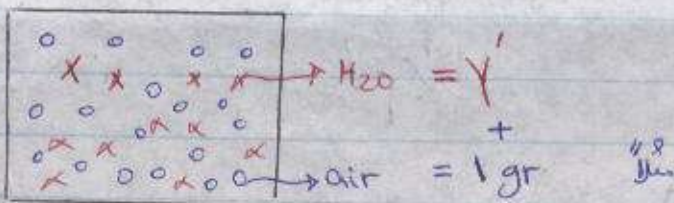 H2O = γ'
+
air = 1 gr